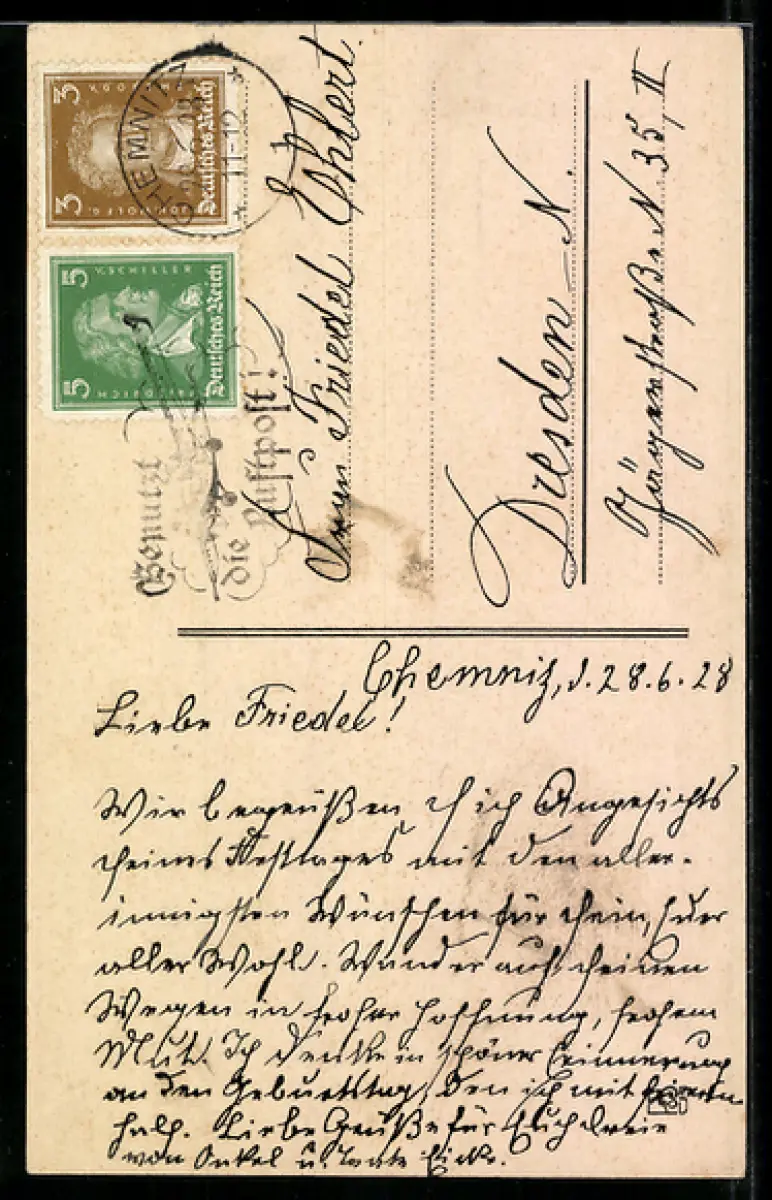 3
JOH. WOLFG.
Deutsches Reich
3
5
FRIEDRICH
V. SCHILLER
Deutsches Reich
5
CHEMNITZ
11-12
Benutzt
die Luftpost!
Friedel Ehlert
Dresden N.
N 35, II
Chemnitz, d. 28.6.28
Liebe Friedel!
Wir begrüßen Dich Angesichts
Deines Festtages mit den aller-
innigsten Wünschen für Dein, Euer
aller Wohl. Wander auf Deinen
Wegen in froher Hoffnung, frohem
Mut. Ich denke in schöner Erinnerung
an den Geburtstag, den ich mit feiern
half. Liebe Grüße für Euch Dreie
von Onkel u. Tante